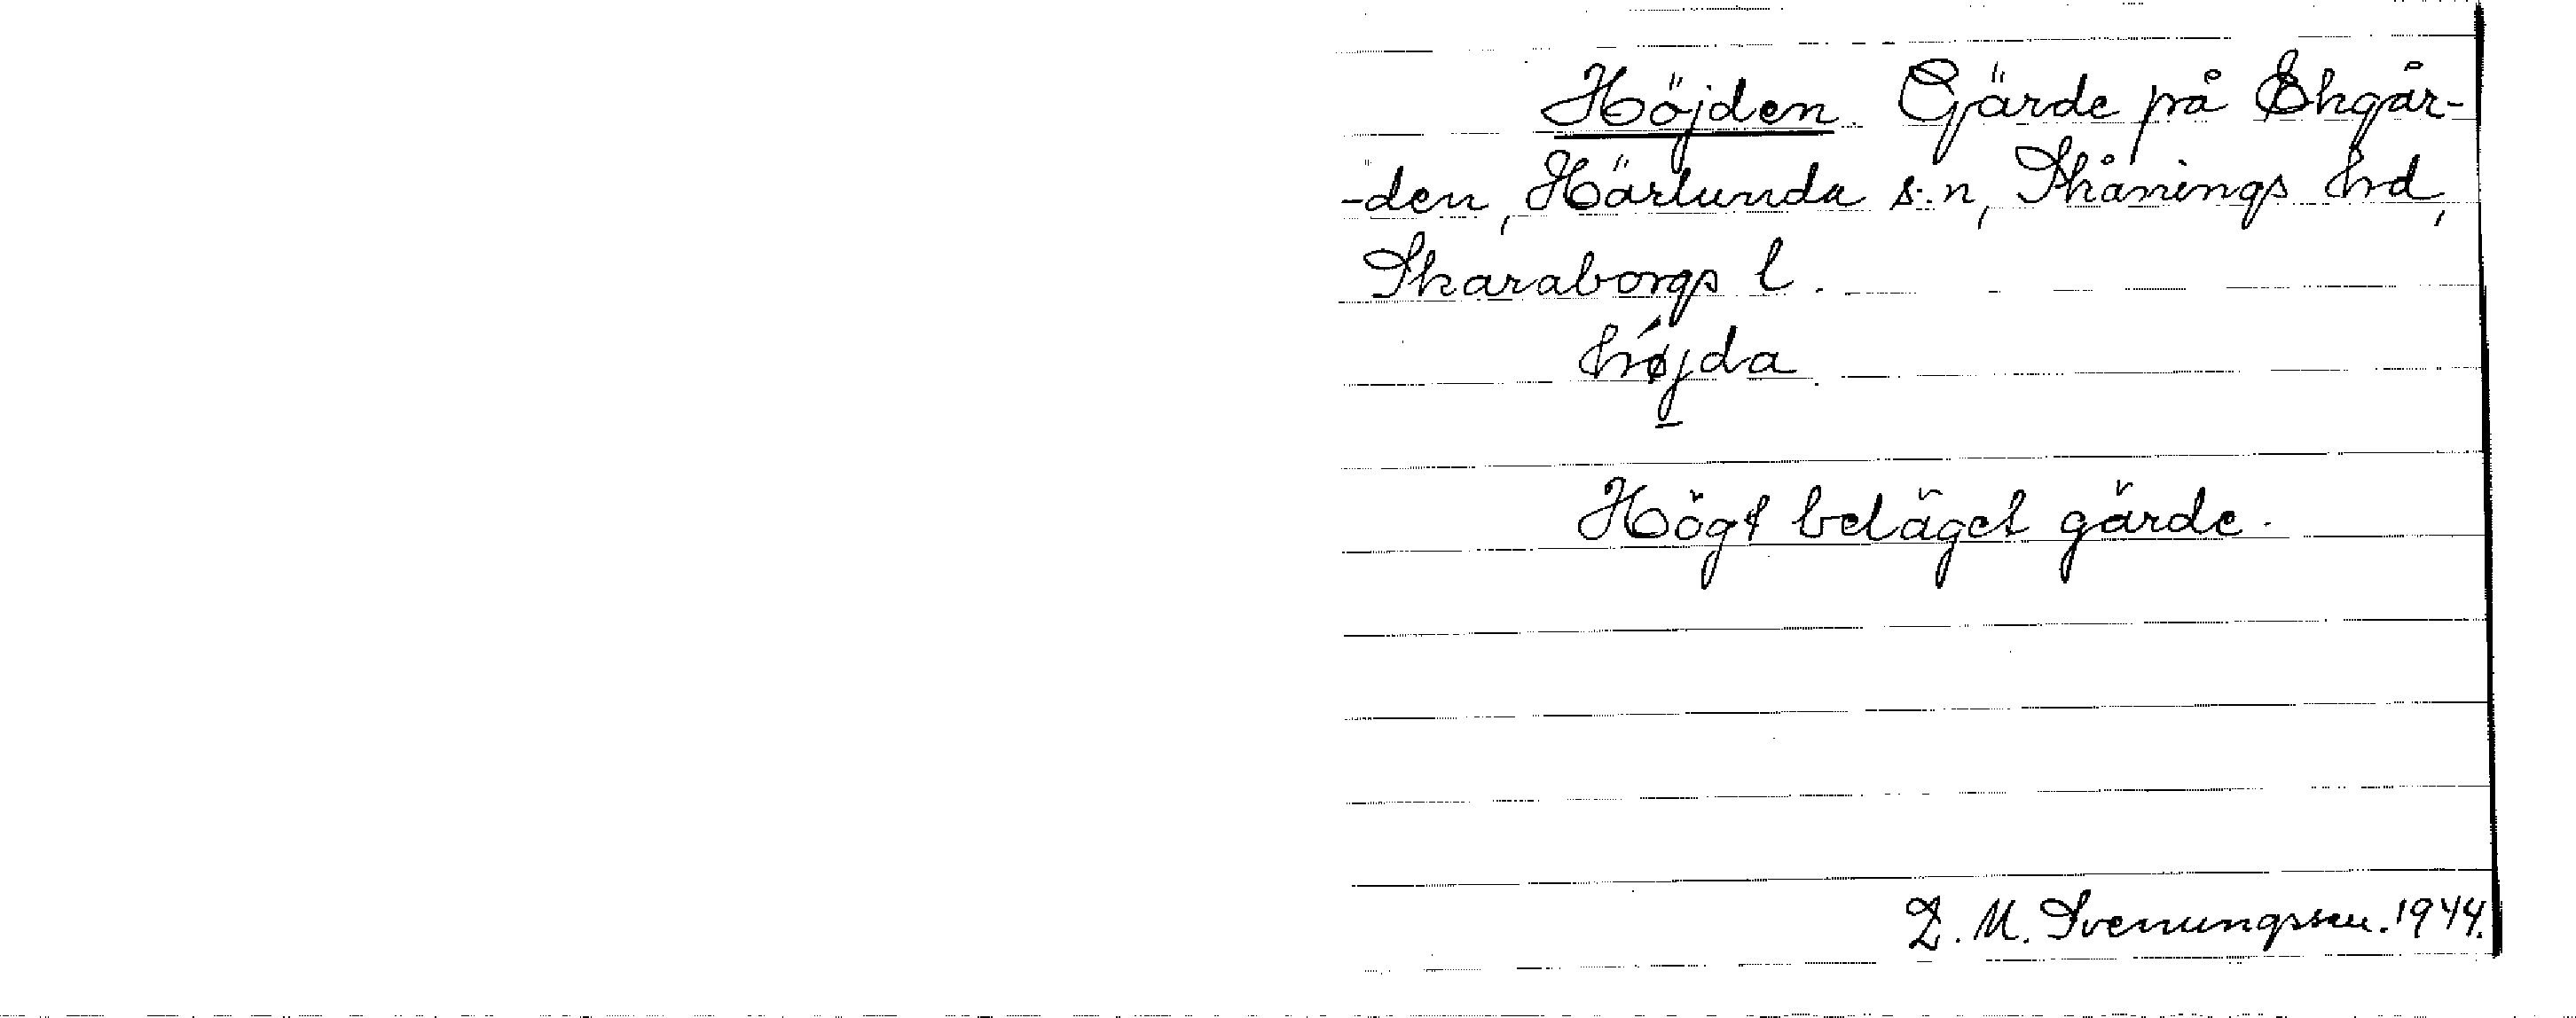 Höjden. Gärde på Ekgår-
-den, Härlunda s:n, Skånings hd,
Skaraborgs l.
hǿjda.
Högt beläget gärde.
Z. M. Svenungsson. 1944.